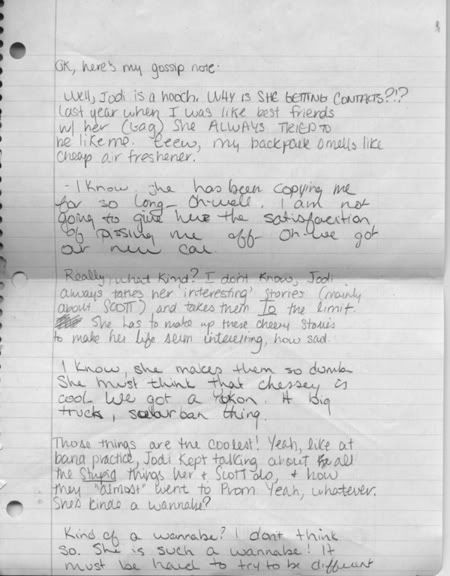 OK, here's my gossip note:
Well, Jodi is a hooch. WHY IS SHE GETTING CONTACTS?!?
last year when I was like best friends
w/ her (Gag) She ALWAYS TRIED TO
be like me. Eeew, my backpack smells like
cheap air freshener.
- I know. She has been copying me
for so long - Oh-well. I am not
going to give her the satisfaction
of pissing me off. Oh-we got
our new car.
Really, what kind? I don't know, Jodi
always takes her 'interesting' stories (mainly
about SCOTT) and takes them to the limit.
She has to make up these cheesy stories
to make her life seem interesting, how sad.
I know, she makes them so dumb.
She must think that chessey is
cool. We got a Yukon. A big
truck, suburban thing.
Those things are the coolest! Yeah, like at
band practice, Jodi kept talking about all
the stupid things her + Scott do, + how
they "almost" went to Prom. Yeah, whatever.
She's kinda a wannabe?
Kind of a wannabe? I dont think
so. She is such a wannabe! It
must be hard to try to be different